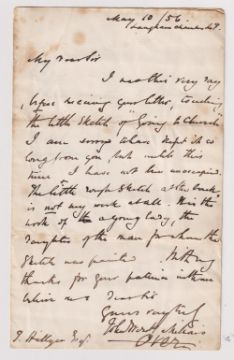 May 10/56
My dear Sir
I was this very day
before receiving your letter, touching
the little Sketch of Going to Church
I am sorry to have kept it so
long from you, but until this
time I have not been unoccupied.
The little rough sketch at the back
is not my work at all. It is the
work of a young lady, the
daughter of the man for whom the
Sketch was painted. With my
thanks for your patience
believe me Dear Sir
Yours very truly
John